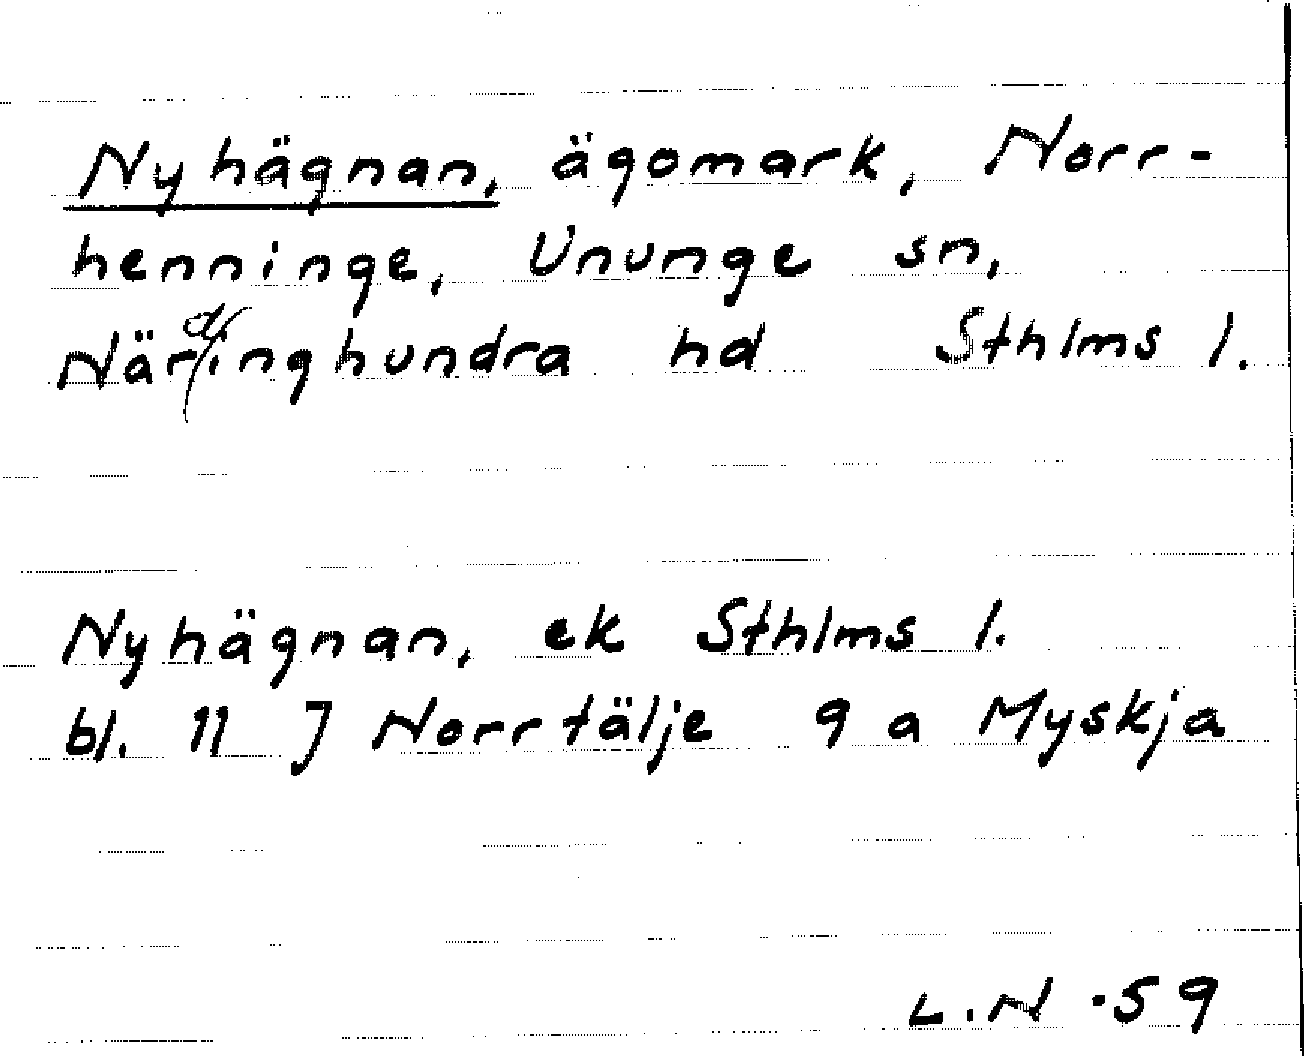 Nyhägnan, ägomark, Norr-
henninge, Ununge sn,
Närdinghundra hd Sthlms l.
Nyhägnan, ek Sthlms l.
bl. 11 J Norrtälje 9 a Myskja
L.N. -59